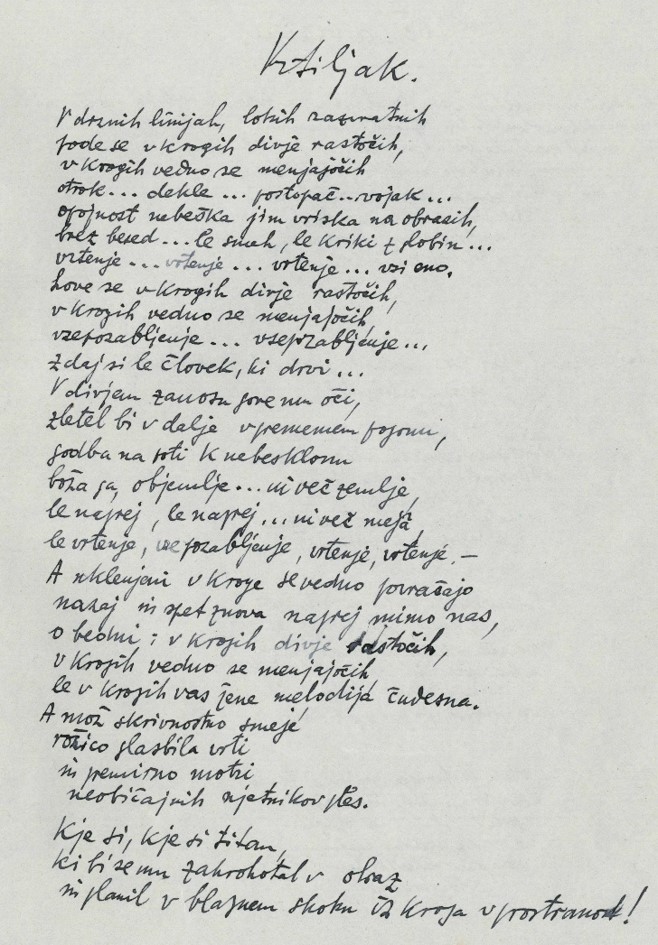 Vrtiljak.
V drznih linijah, lokih zavratnih
pode se v krogih divje rastočih,
v krogih vedno se menjajočih
otrok... dekle... postopač... vojak...
opojnost nebeška jim vriska na obrazih,
brez besed... le smeh, le kriki z globin...
vrtenje... vrtenje... vrtenje... vsi eno.
Love se v krogih divje rastočih,
v krogih vedno se menjajočih,
vsepozabljenje... vsepozabljenje...
Zdaj si le človek, ki drvi...
V divjem zanosu gore mu oči,
zletel bi v dalje v pogonu,
godba na poti k nebesklonu
boža ga, objemlje... ni več zemlje,
le naprej, le naprej... ni več meja,
le vrtenje, vsepozabljenje, vrtenje, vrtenje. —
A vklenjeni v kroge se vedno povračajo
nazaj in spet znova naprej mimo nas,
o bedni: v krogih divje rastočih,
v krogih vedno se menjajočih
le v krogih vas žene melodija čudesna.
A mož skrivnostno smeje
ročico glasbila vrti
in premirno motri
neobičajnih ujetnikov ples.
Kje si, kje si titan,
ki bi se mu zakrohotal v obraz
in planil v blaznem skoku iz kroga v prostranost!